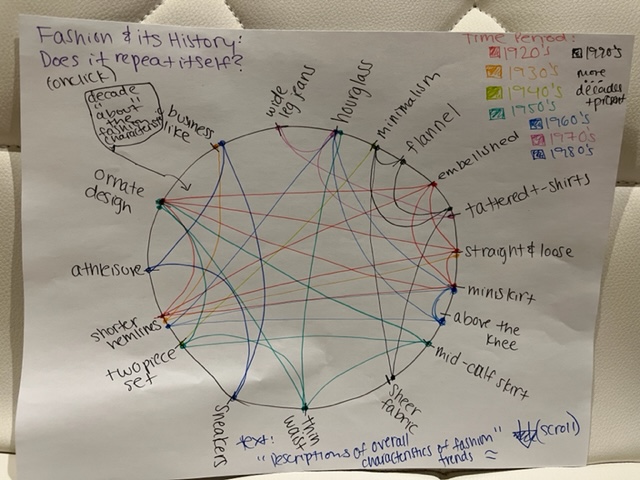 Fashion & its History:
Does it repeat itself?
(onclick)
decade
"about"
the
fashion
characteristic
Time Period:
1920's
1930's
1940's
1950's
1960's
1970's
1980's
1990's
more
decades
+present
business
like
wide
leg jeans
hourglass
minimalism
flannel
embellished
tattered t-shirts
straight & loose
miniskirt
above the
knee
mid-calf skirt
sheer
fabric
thin
waist
sneakers
two piece
set
shorter
hemlines
athleisure
ornate
design
text:
"Descriptions of overall
characteristics of fashion"
trends
(scroll)